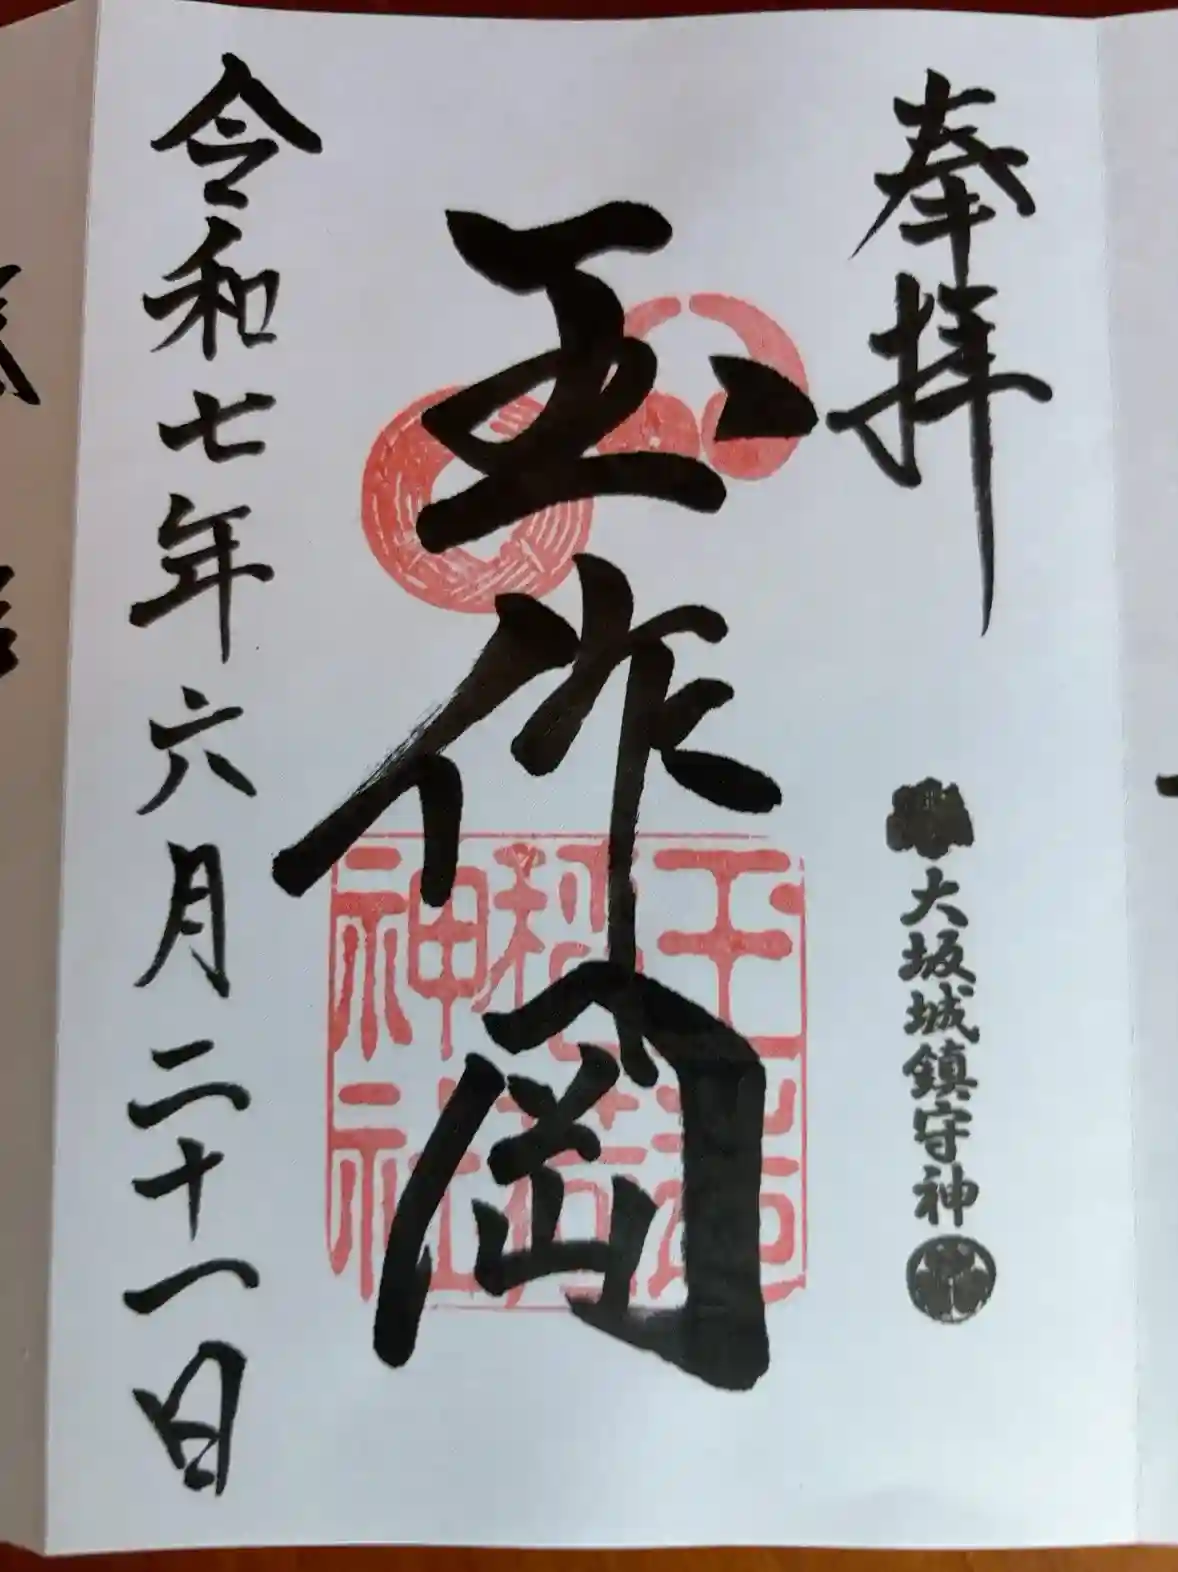 奉拝
大坂城鎮守神
玉作岡
玉造
稲荷
神社
令和七年六月二十一日